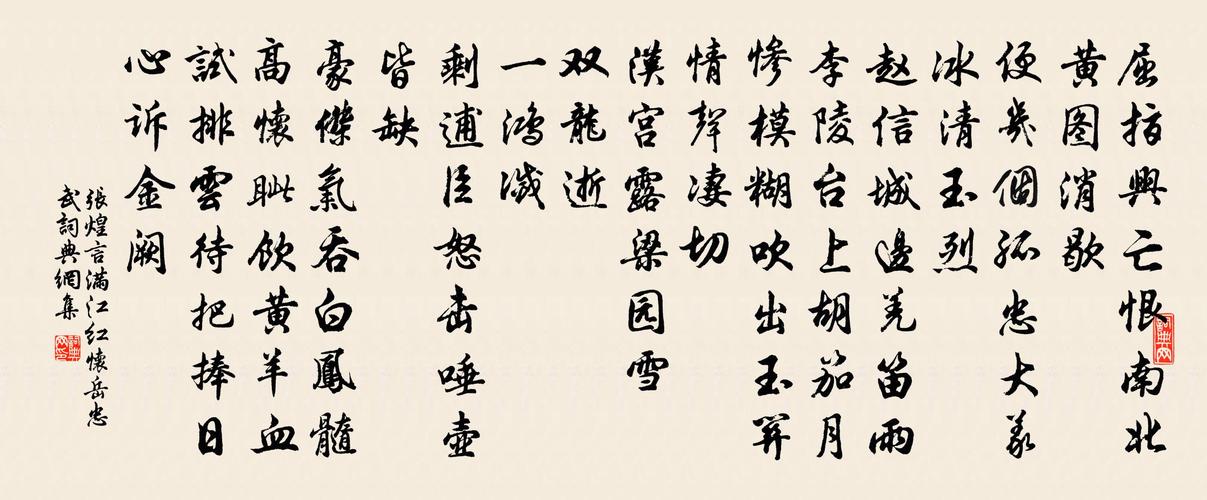 屈指興亡恨南北
黄图消歇
便幾個孤忠大義
冰清玉烈
赵信城邊羌笛雨
李陵台上胡笳月
惨模糊吹出玉関
情聲凄切
漢宫露梁园雪
双龍逝
一鸿滅
剩逋臣怒击唾壶
皆缺
豪傑氣吞白鳳髓
高懷眦饮黄羊血
試排雲待把捧日
心诉金阙
張煌言满江红懷岳忠
武詞典網集
詞典网
詞典网印